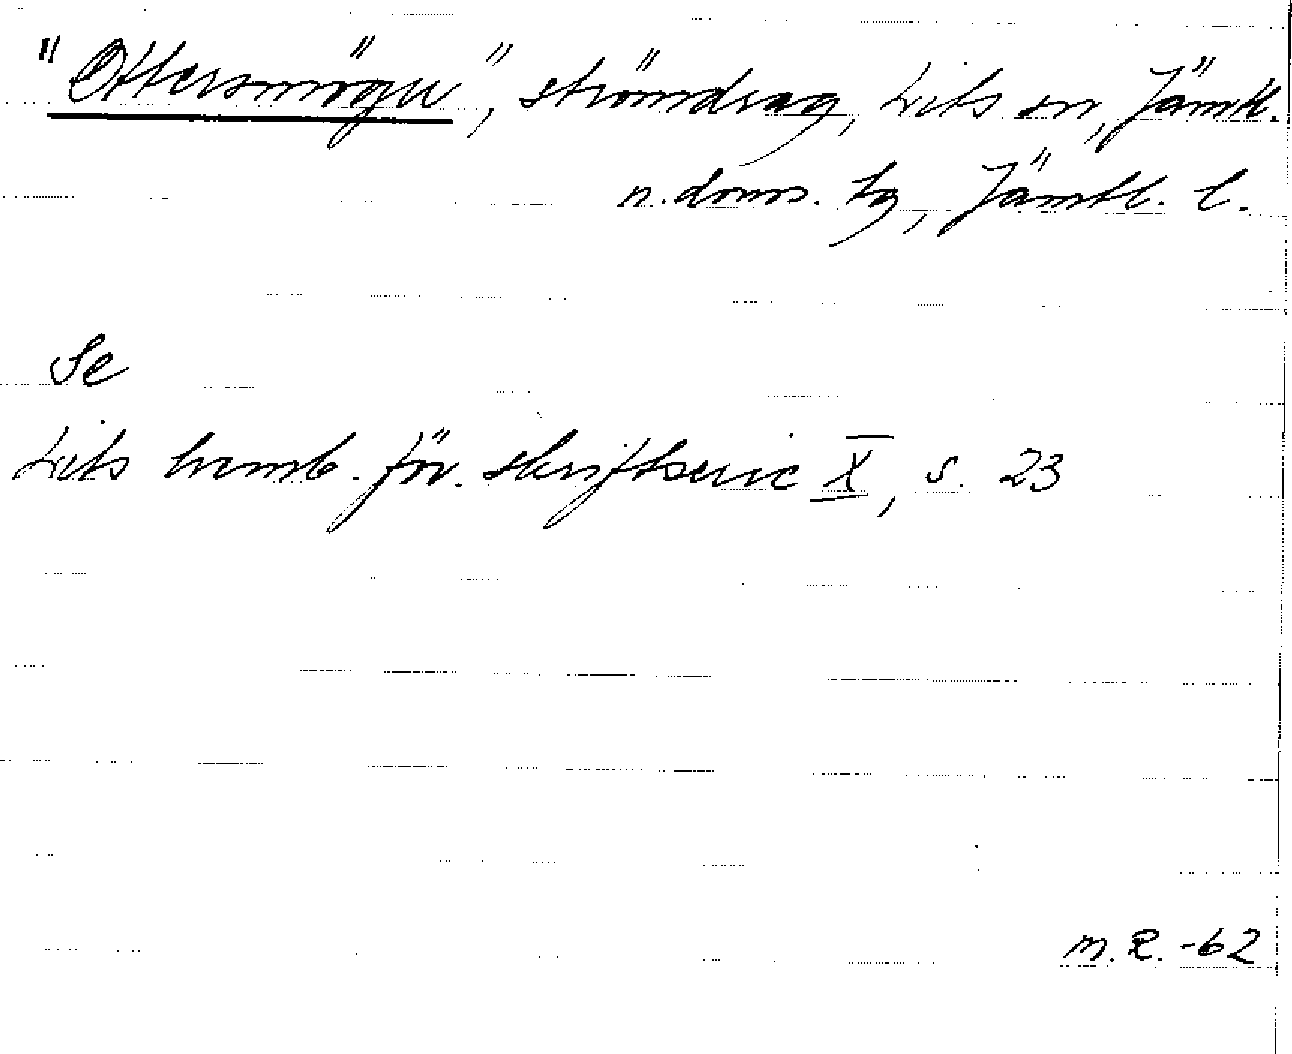 "Ottersmögen", strömdrag, Lits sn, Jämtl.
n. doms. tg, Jämtl. l.
Se
Lits hemb. för. skriftserie X, s. 23
m.R. -62